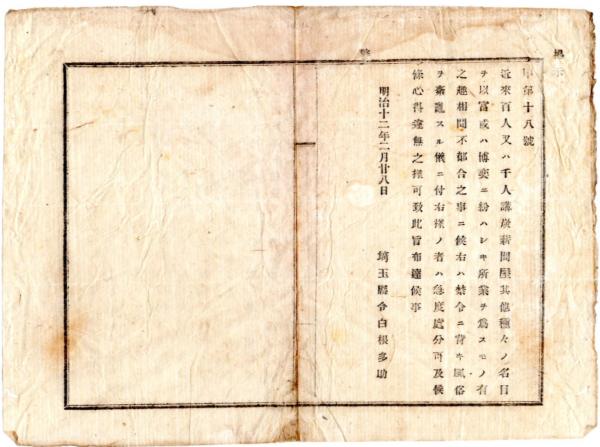 甲第十八號
近來百人又ハ千人講或新聞種其他種々ノ名目
ヲ以富或ハ博奕ニ紛ハシキ所業ヲ爲スモノ有
之趣相聞不都合之事ニ候右ハ禁令ニ背キ風俗
ヲ紊亂スル儀ニ付右樣ノ者ハ急度處分可及候
條心得違無之樣可致此旨布達候事
明治十二年二月廿八日
埼玉縣令白根多助